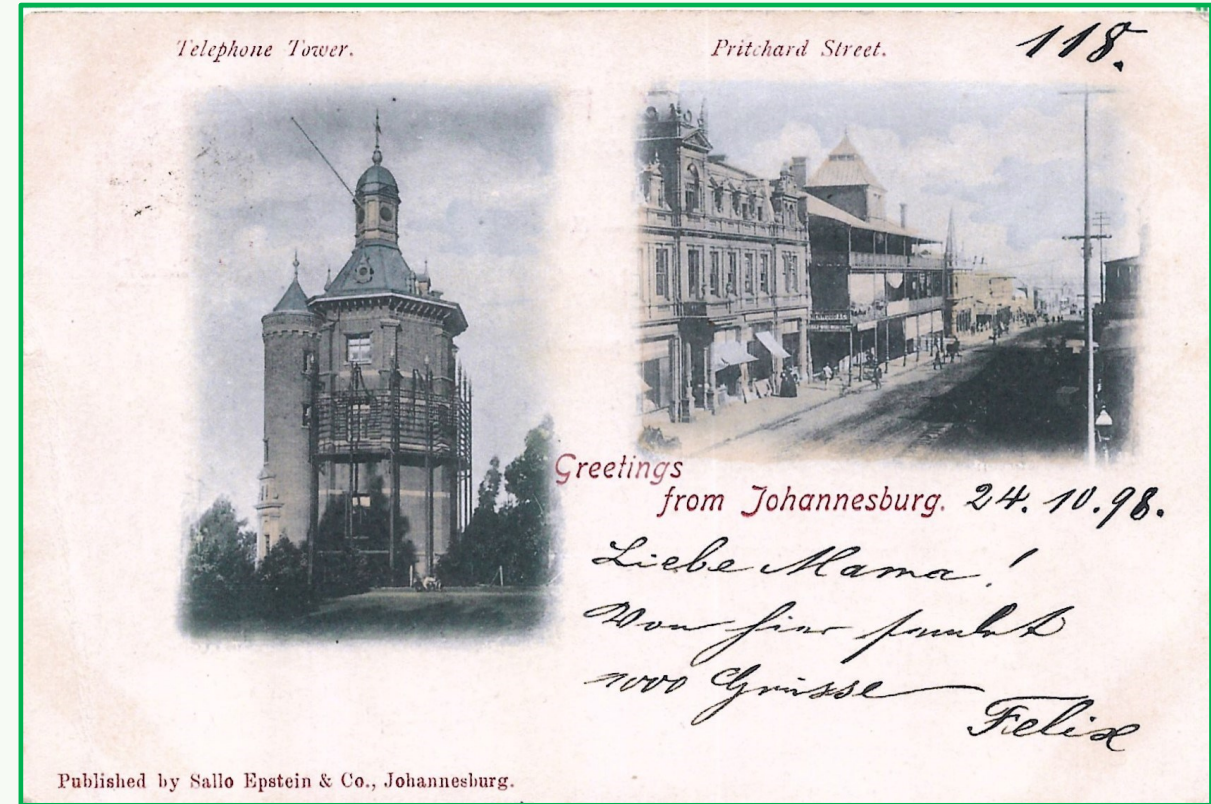 Telephone Tower.
Pritchard Street.
118.
Greetings
from Johannesburg.
24.10.98.
Liebe Mama!
Von hier sendet
1000 Grüsse
Felix
Published by Sallo Epstein & Co., Johannesburg.